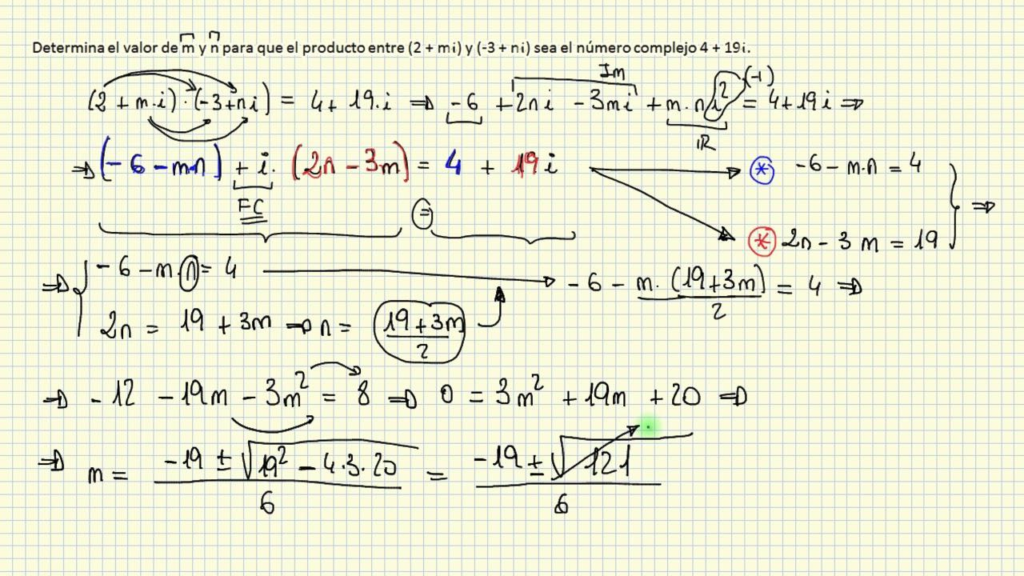 Determina el valor de m y n para que el producto entre (2 + mi) y (-3 + ni) sea el número complejo 4 + 19i.
Im
(2 + m·i)·(-3+ni) = 4 + 19·i ⇒ -6 + 2ni - 3mi + m·ni² (-1) = 4+19i ⇒
ℝ
⇒ (-6 - m·n) + i·(2n - 3m) = 4 + 19i → * -6 - m·n = 4
FC
=
* 2n - 3m = 19 } ⇒
⇒ { -6 - m n = 4 → -6 - m·(19+3m)/2 = 4 ⇒
2n = 19 + 3m → n = (19+3m)/2
⇒ -12 - 19m - 3m² = 8 ⇒ 0 = 3m² + 19m + 20 ⇒
⇒ m = (-19 ± √(19² - 4·3·20))/6 = (-19 ± √121)/6